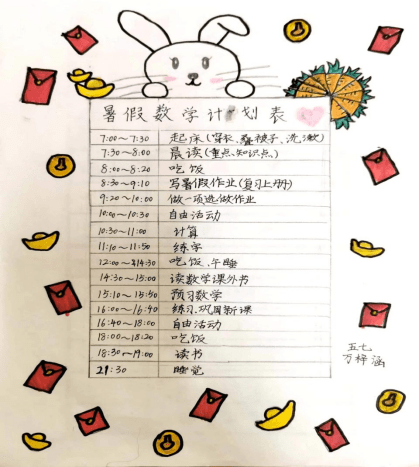 暑假数学计划表
7:00~7:30 起床(穿衣、叠被子、洗漱)
7:30~8:00 晨读(重点、知识点、)
8:00~8:20 吃饭
8:30~9:10 写暑假作业(复习上册)
9:20~10:00 做一项选做作业
10:00~10:30 自由活动
10:30~11:00 计算
11:10~11:50 练字
12:00~14:30 吃饭、午睡
14:30~15:00 读数学课外书
15:10~15:50 预习数学
16:00~16:40 练习、巩固新课
16:40~18:00 自由活动
18:00~18:20 吃饭
18:30~19:00 读书
21:30 睡觉
五七
万梓涵